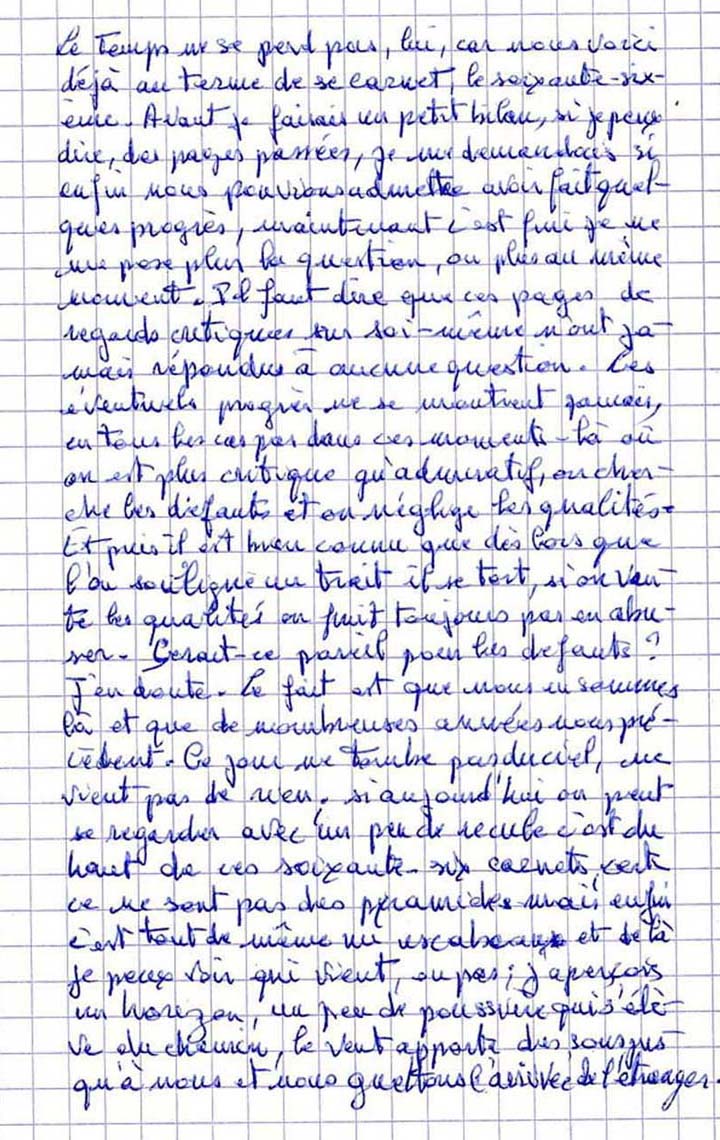 Le Temps ne se perd pas, lui, car nous voici
déjà au terme de se carnet, le soixante-six-
ème. Avant je faisais un petit bilan, si je peux
dire, des pages passées, je me demandais si
enfin nous pouvions admettre avoir fait quel-
ques progrès, maintenant c'est fini je ne
me pose plus la question, ou plus au même
moment. Il faut dire que ces pages de
regards critiques sur soi-même n'ont ja-
mais répondus à aucune question. Les
éventuels progrès ne se montrent jamais,
en tous les cas pas dans ces moments-là où
on est plus critique qu'admiratif, on cher-
che les défauts et on néglige les qualités.
Et puis il est bien connu que dès lors que
l'on souligne un trait il se tort, si on van-
te les qualités on finit toujours par en abu-
ser. Serait-ce pareil pour les défauts ?
J'en doute. Le fait est que nous en sommes
là et que de nombreuses années nous pré-
cèdent. Ce jour ne tombe pas du ciel, ne
vient pas de rien. si aujourd'hui on peut
se regarder avec un peu de recule c'est du
haut de ces soixante-six carnets, certe
ce ne sont pas des pyramides mais enfin
c'est tout de même un escabeau et de là
je peux voir qui vient, ou pas; j'aperçois
un horizon, un peu de poussière qui s'élè-
ve du chemin, le vent apporte des sons jus-
qu'à nous et nous guettons l'arrivée de l'étranger.